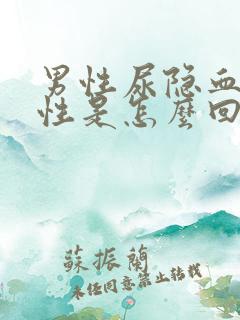 男性尿隐血
性是怎麼回
蘇振蘭
未经同意禁止转载